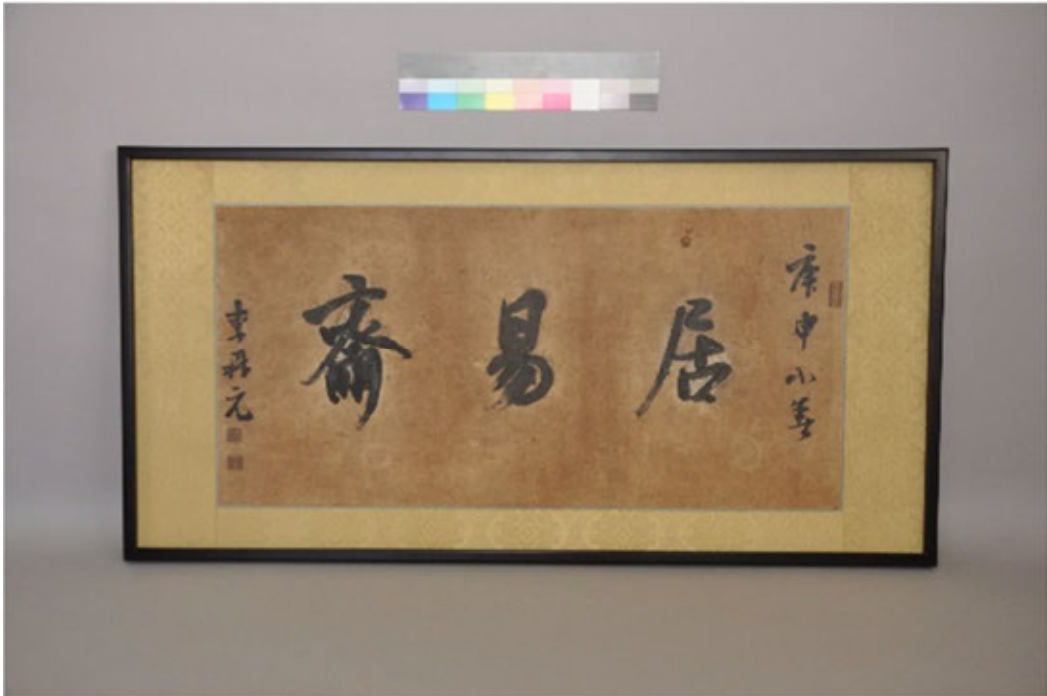 庚申小
居易齋
李鼎元